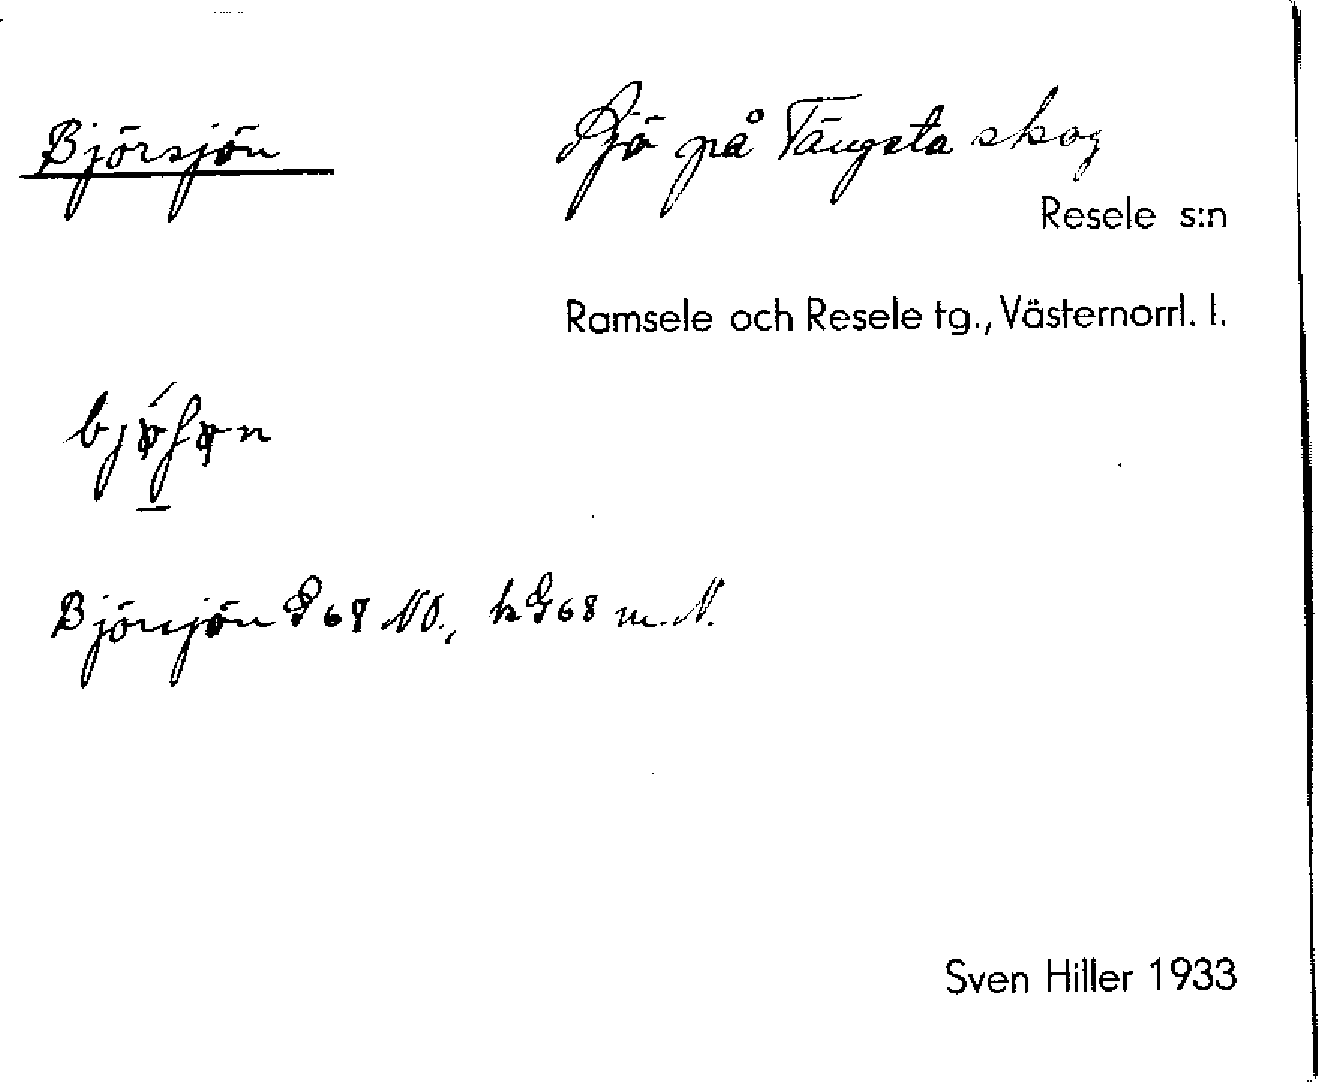 Björsjön
Sjö på Tängsta skog
Resele s:n
Ramsele och Resele tg., Västernorrl. l.
Björsjön G 68 NO., h G 68 m. N.
Sven Hiller 1933